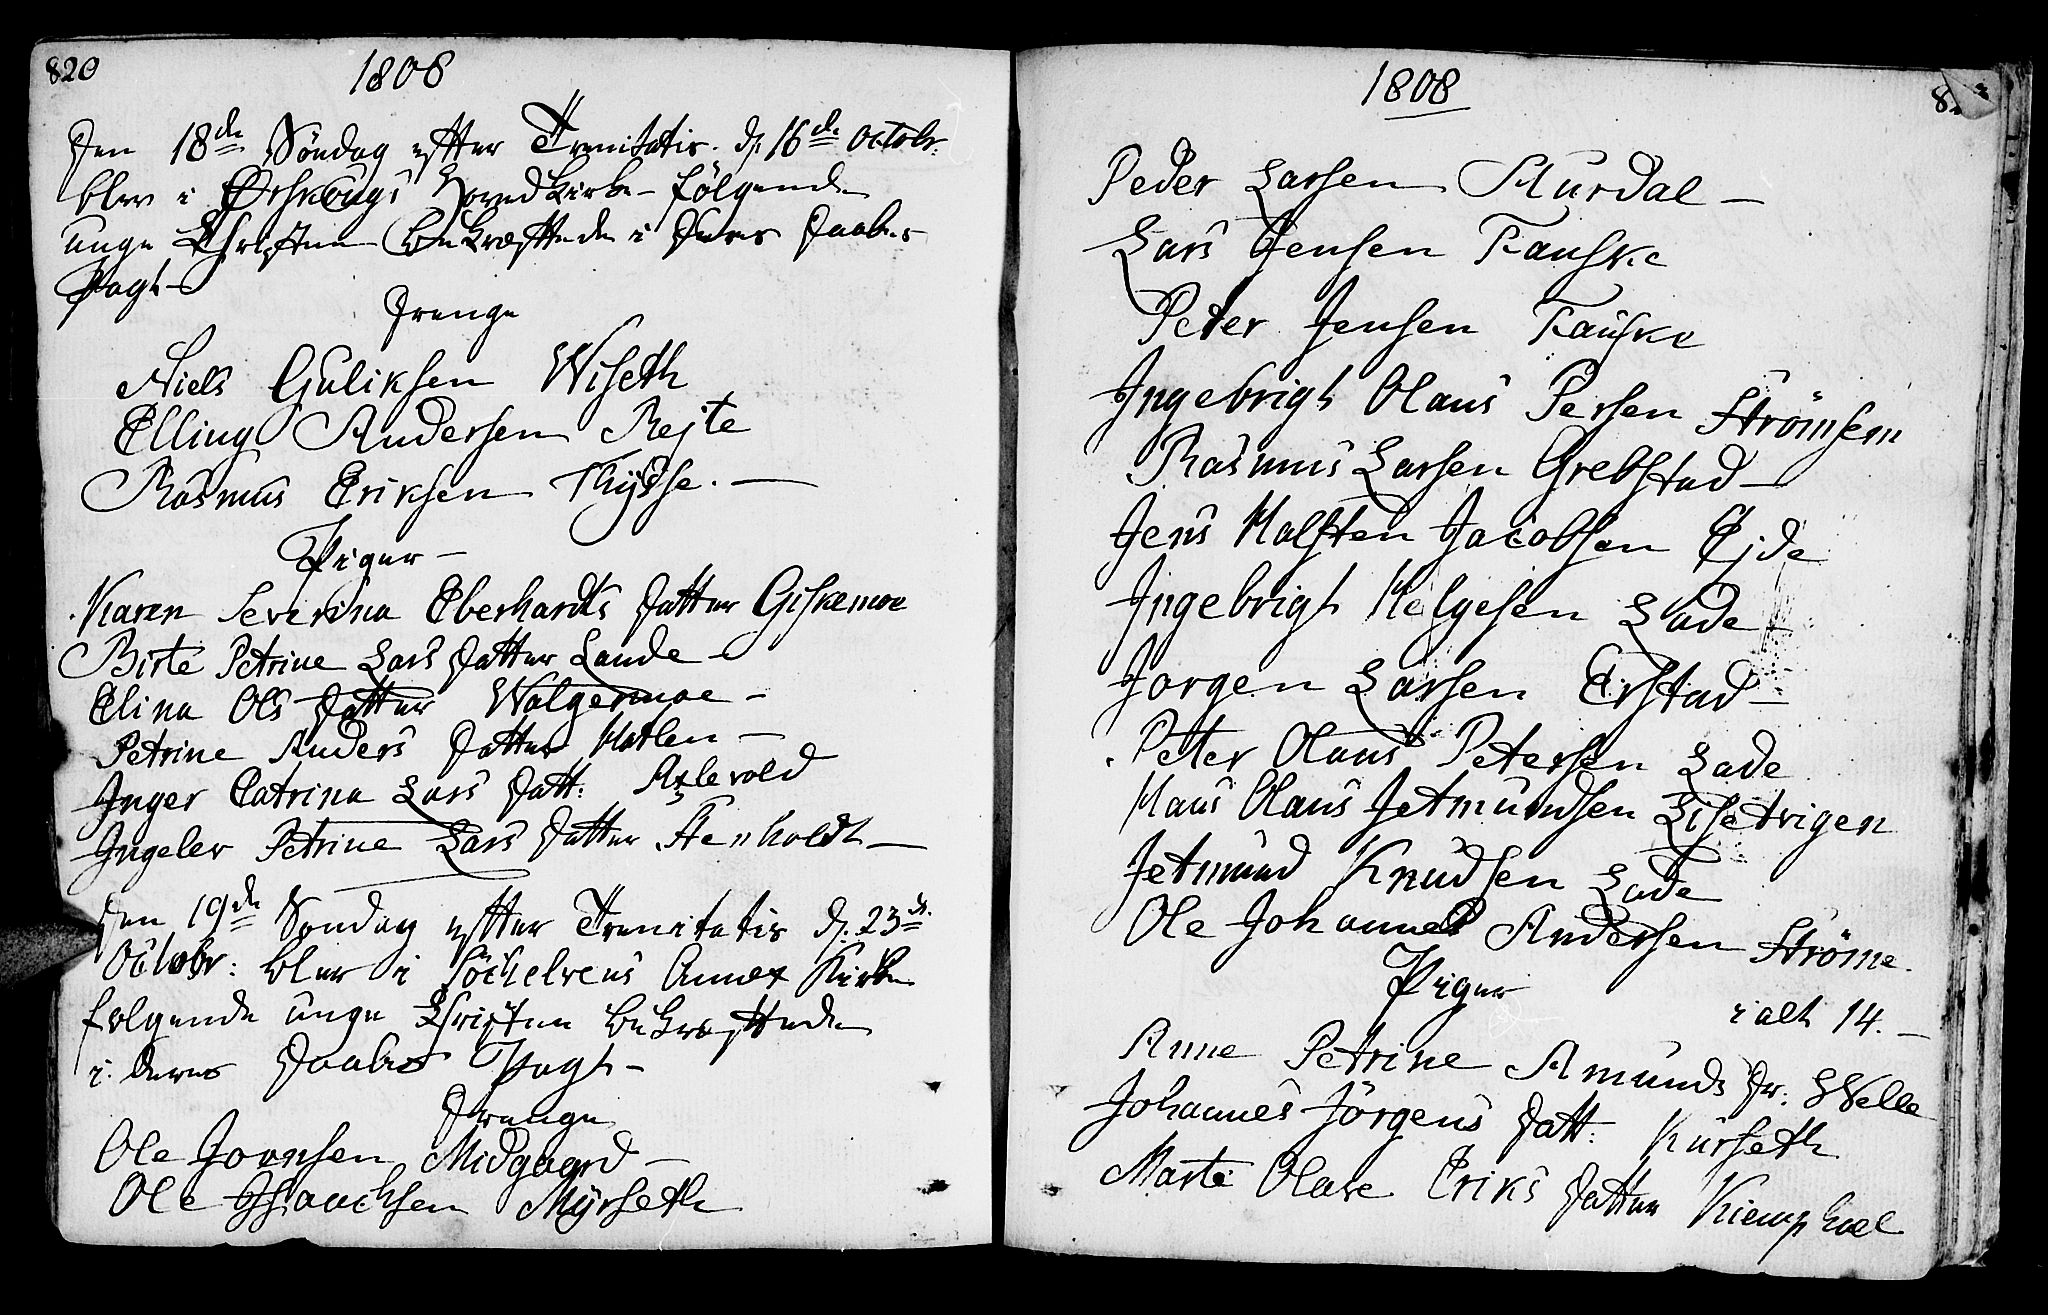 820
1808
Den 18de Söndag efter Trinitatis. d. 16de Octobr:
blev i Örskougs Hovedkirke følgende
unge Christne bekræftede i deres Daabes
Pagt
Drenge
Niels Guliksen Wiseth
Elling Andersen Rejte
Rasmus Eriksen Thysse.
Piger
Karen Severina Eberhardts Datter Giskemoe
Birte Petrine Lars Datter Lande
Elina Ols Datter Walgermoe
Petrine Anders Datter Hatlen
Inger Catrina Lars Datt: Apelvold
Ingeler Petrine Lars Datter Stenholdt
Den 19de Söndag efter Trinitatis d. 23de
Octobr: blev i Söchelvens Annex Kirke
følgende unge Christne bekræftede
i deres Daabes Pagt
Drenge
Ole Joensen Midgaard
Ole Isaachsen Myrseth
1808
Peder Larsen Murdal
Lars Jensen Fauske
Peter Jensen Fauske
Ingebrigt Olaus Persen Strömsem
Rasmus Larsen Grebstad
Jens Halsten Jacobsen Ejde
Ingebrigt Helgesen Lade
Jorgen Larsen Erstad
Petter Olaus Petersen Lade
Hans Olaus Jetmundsen Lisetrigen
Jetmund Knudsen Lade
Ole Johannes Andersen Ströme.
Piger
i alt 14.
Anne Petrine Amunds Dr. Welle
Johannes Jörgens Datt: Kurseth
Marte Olave Eriks Datter Kiemphoel